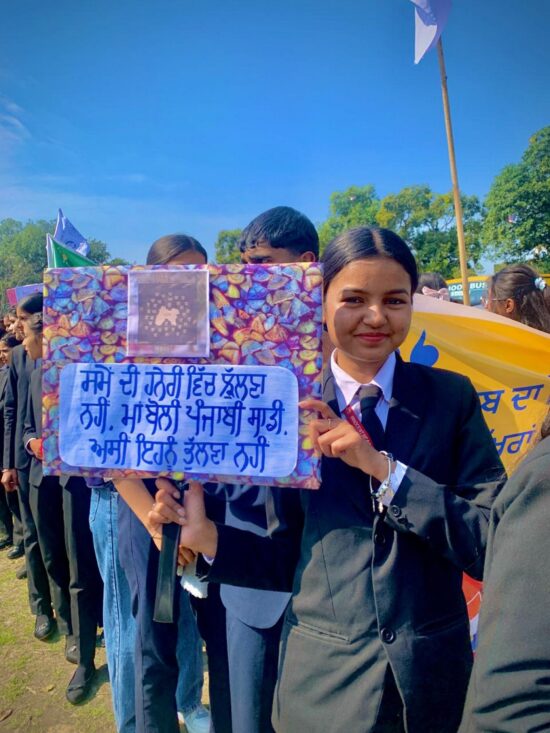 ਸਮੇਂ ਦੀ ਹਨੇਰੀ ਵਿੱਚ ਝੁੱਲਣਾ
ਨਹੀਂ, ਮਾਂ ਬੋਲੀ ਪੰਜਾਬੀ ਸਾਡੀ,
ਅਸੀਂ ਇਹਨੂੰ ਭੁੱਲਣਾ ਨਹੀਂ
BUS
ਦਾ